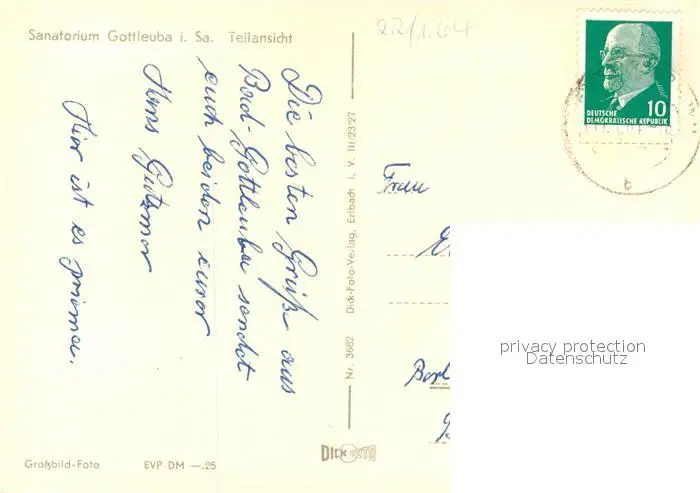 Sanatorium Gottleuba i. Sa. Teilansicht
22/1.64
Die besten Grüße aus
Bad-Gottleuba sendet
euch beiden eurer
Hans Gutzmer
Hier ist es prima.
Nr. 3682 Dick-Foto-Verlag, Erlbach i. V. III/23/27
DEUTSCHE
DEMOKRATISCHE REPUBLIK
10
b
Frau
Berl
privacy protection
Datenschutz
DICK FOTO
Großbild-Foto EVP DM —.25